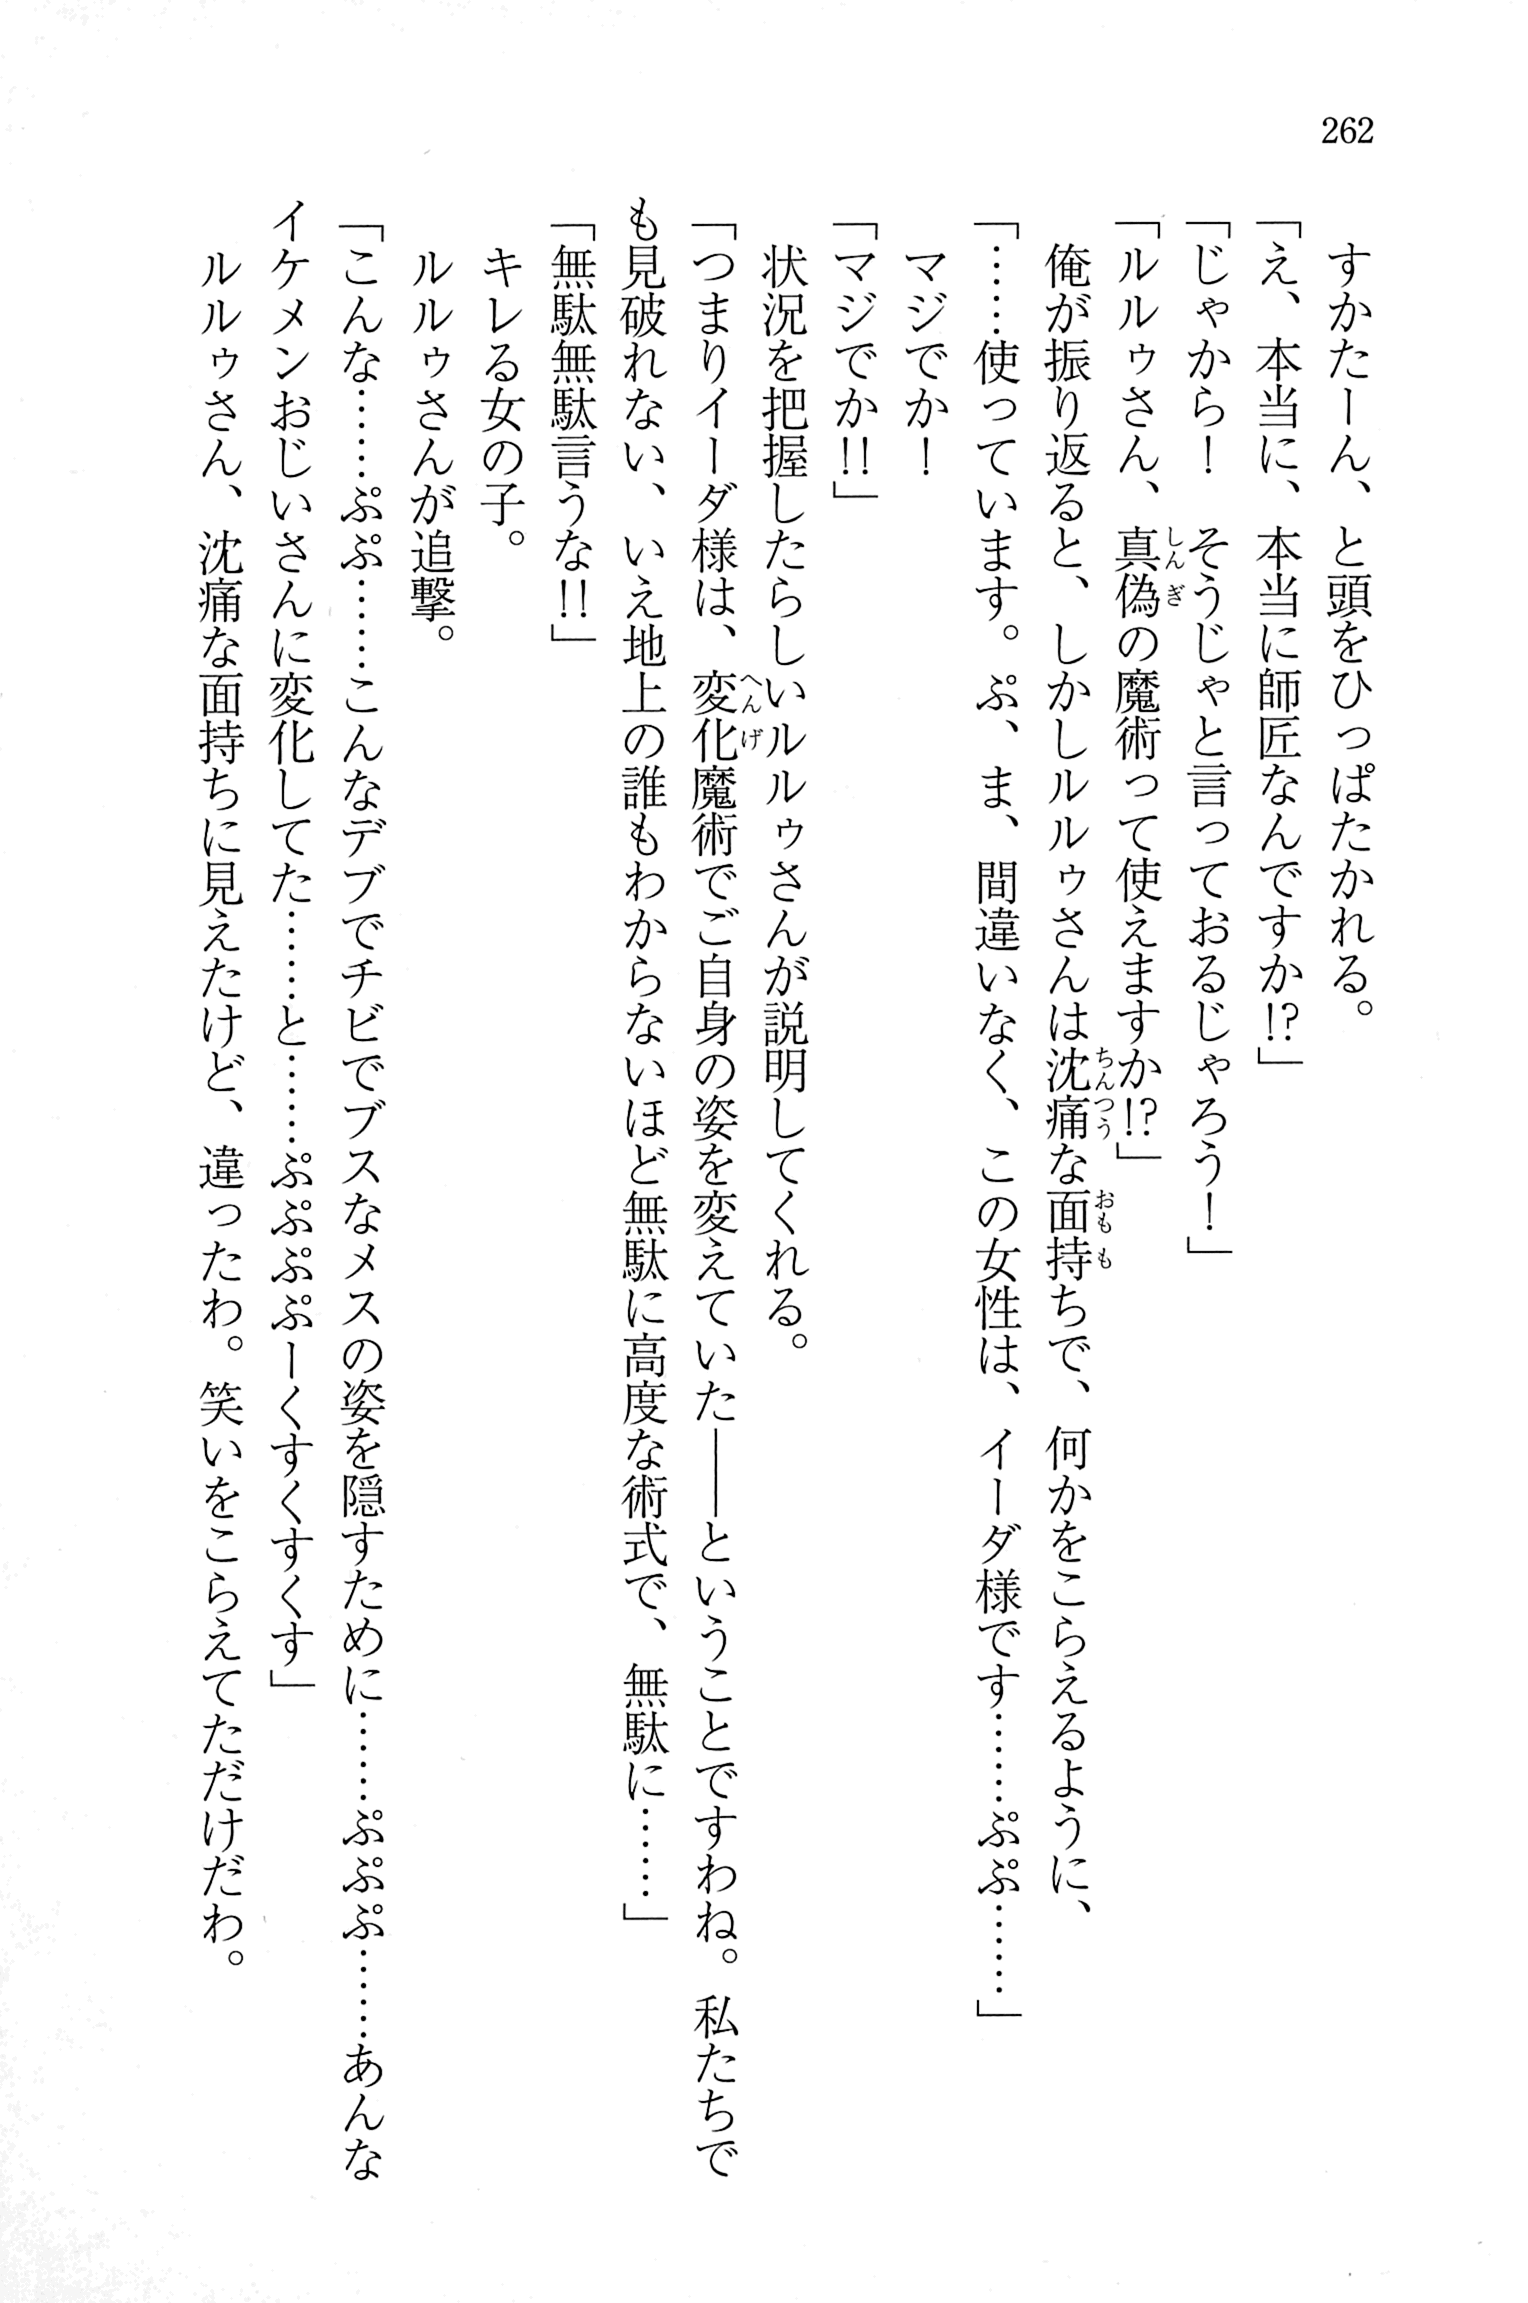 262
すかたーん、と頭をひっぱたかれる。
「え、本当に、本当に師匠なんですか!?」
「じゃから！　そうじゃと言っておるじゃろう！」
「ルルゥさん、真偽の魔術って使えますか!?」
俺が振り返ると、しかしルルゥさんは沈痛な面持ちで、何かをこらえるように、
「……使っています。ぷ、ま、間違いなく、この女性は、イーダ様です……ぷぷ……」
マジでか！
「マジでか!!」
状況を把握したらしいルルゥさんが説明してくれる。
「つまりイーダ様は、変化魔術でご自身の姿を変えていた――ということですわね。私たちで
も見破れない、いえ地上の誰もわからないほど無駄に高度な術式で、無駄に……」
「無駄無駄言うな!!」
キレる女の子。
ルルゥさんが追撃。
「こんな……ぷぷ……こんなデブでチビでブスなメスの姿を隠すために……ぷぷぷ……あんな
イケメンおじいさんに変化してた……と……ぷぷぷぷーくすくすくす」
ルルゥさん、沈痛な面持ちに見えたけど、違ったわ。笑いをこらえてただけだわ。